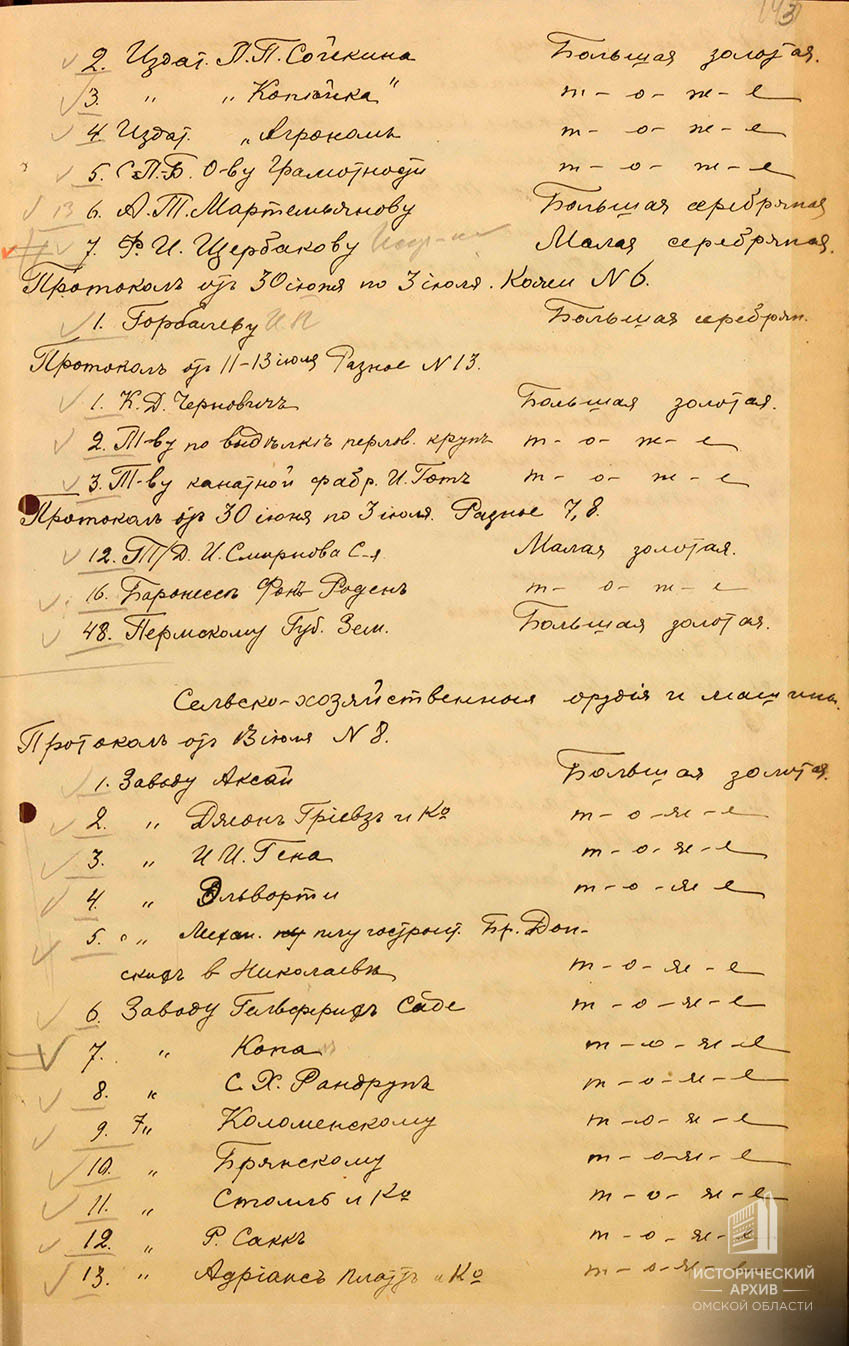 143
2. Издат. П. П. Сойкина Большая золотая.
3. „ „Копѣйка" т-о-ж-е
4. Издат. „Агрономъ т-о-ж-е
5. С.-П.-Б. О-ву Грамотности т-о-ж-е
13 6. А. Т. Мартемьянову Большая серебряная
7. Ф. И. Щербакову Малая серебряная.
Протоколъ отъ 30 іюня по 3 іюля. Кожи N 6.
1. Горбалеву И П Большая серебрян.
Протоколъ отъ 11-13 іюля Разное N 13.
1. К. Д. Черновичъ Большая золотая.
2. Т-ву по выдѣлкѣ перлов. крупъ т-о-ж-е
3. Т-ву канатной фабр. И. Готъ т-о-ж-е
Протоколъ отъ 30 іюня по 3 іюля. Разное 7, 8.
12. Т/Д. И. Смирнова С-я Малая золотая.
16. Баронессѣ Фонъ Роденъ т-о-ж-е
48. Пермскому Губ. Зем. Большая золотая.
Сельско-хозяйственныя орудія и машины.
Протоколъ отъ 13 іюля N 8.
1. Заводу Аксай Большая золотая.
2. „ Джонъ Гріевзъ и Ко т-о-же-е
3. „ И И. Гена т-о-ж-е
4. „ Эльворти т-о-ж-е
5. „ Механ. плугострοит. Бр. Дон-
скихъ в Николаевѣ т-о-ж-е
6. Заводу Гельферихъ Саде т-о-ж-е
7. „ Копа т-о-ж-е
8. „ С. Х. Рандрупъ т-о-ж-е
9. „ Коломенскому т-о-ж-е
10. „ Брянскому т-о-ж-е
11. „ Столль и Ко т-о-ж-е
12. „ Р. Саккъ т-о-ж-е
13. „ Адріансъ Платтъ и Ко т-о-ж-е
ИСТОРИЧЕСКИЙ
АРХИВ
ОМСКОЙ ОБЛАСТИ